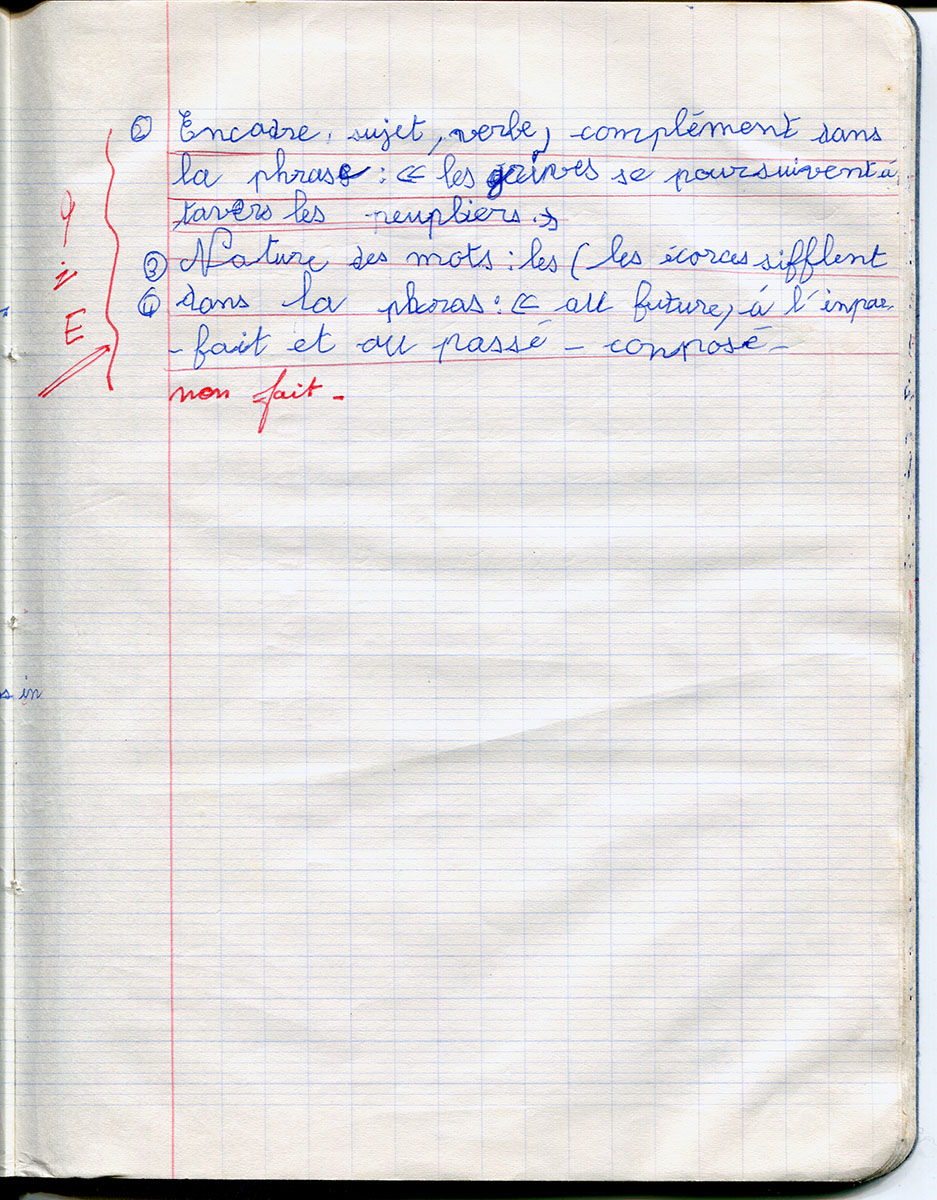 ② Encadre, sujet, verbe, complément dans
la phrase : « les grives se poursuivent à
tavers les peupliers. »
③ Nature des mots : les ( les écorces sifflent
④ dans la phras : « au future, à l'inpar-
- fait et au passé - conposé -
non fait -
E
s in